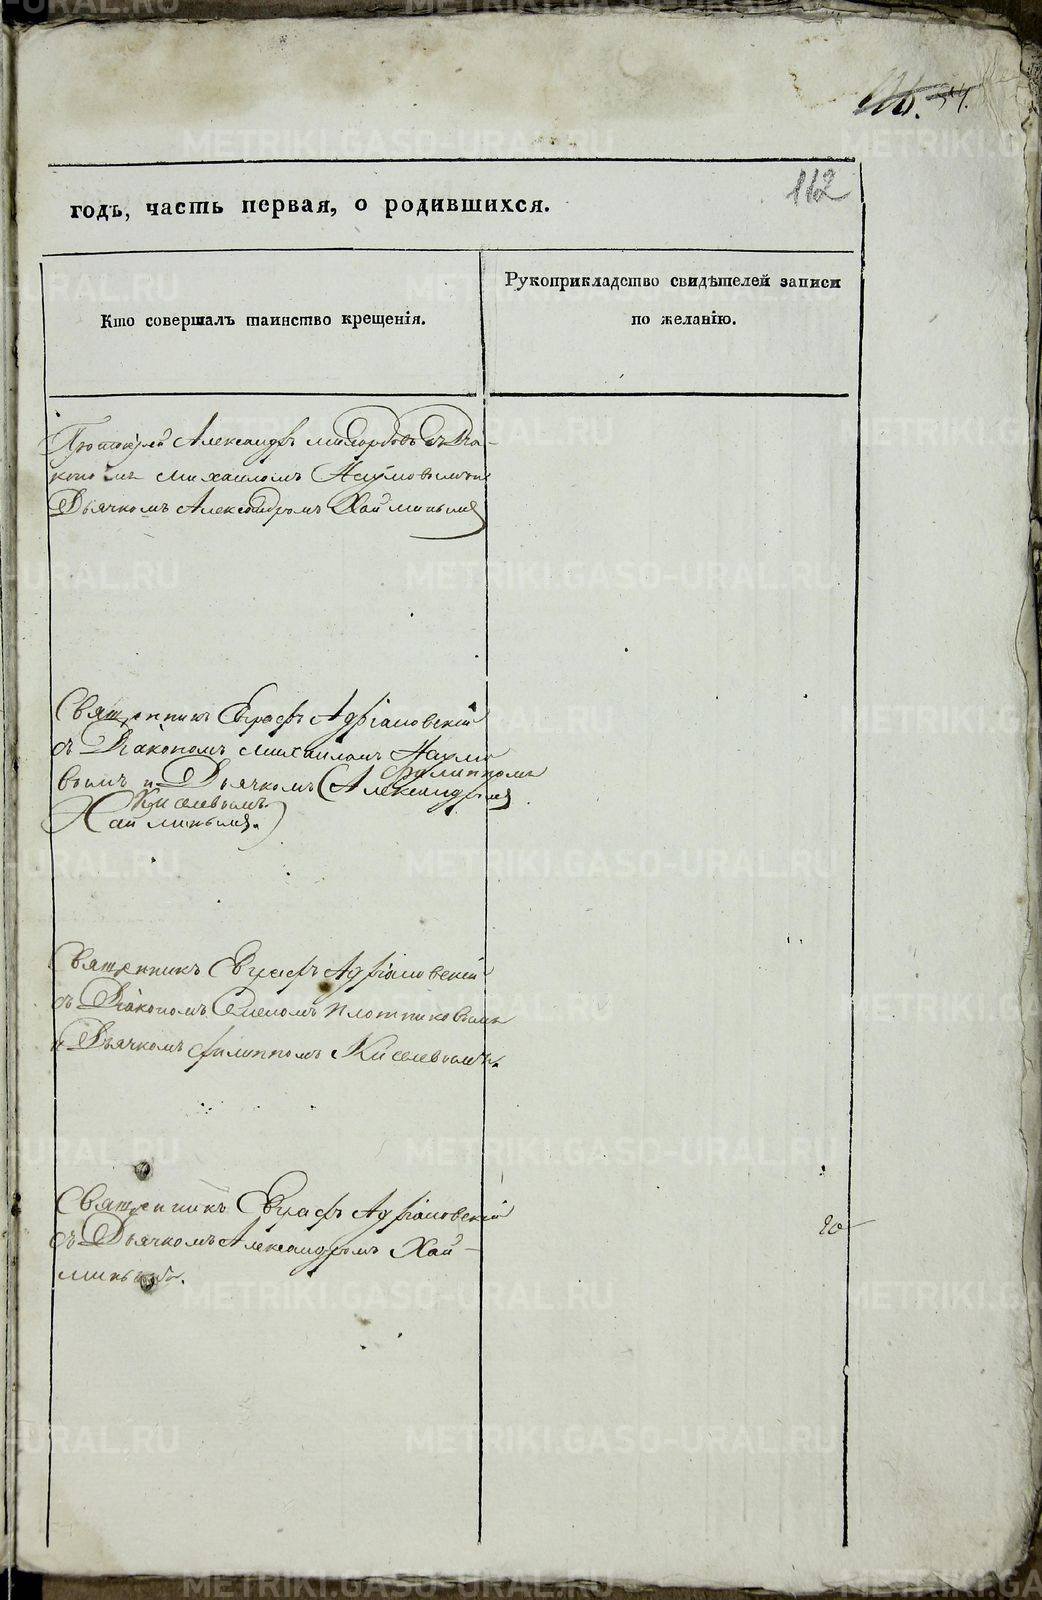 112
годъ, часть первая, о родившихся.
Кто совершалъ таинство крещенія.
Рукоприкладство свидѣтелей записи
по желанію.
Протоіерей Александръ съ Діа-
кономъ Михаиломъ Наумовымъ и
Дьячкомъ Александромъ Хайминымъ
Священникъ Евграфъ Адріановскій
съ Діакономъ Михаиломъ Наумо
вымъ и Дьячкомъ (Александромъ
Филиппомъ
Киселевымъ
Хайминымъ.)
Священникъ Евграфъ Адріановскій
съ Діакономъ Плотниковымъ
и Дьячкомъ Филиппомъ Киселевымъ.
Священникъ Евграфъ Адріановскій
съ Дьячкомъ Александромъ Хай-
минымъ.
METRIKI.GASO-URAL.RU